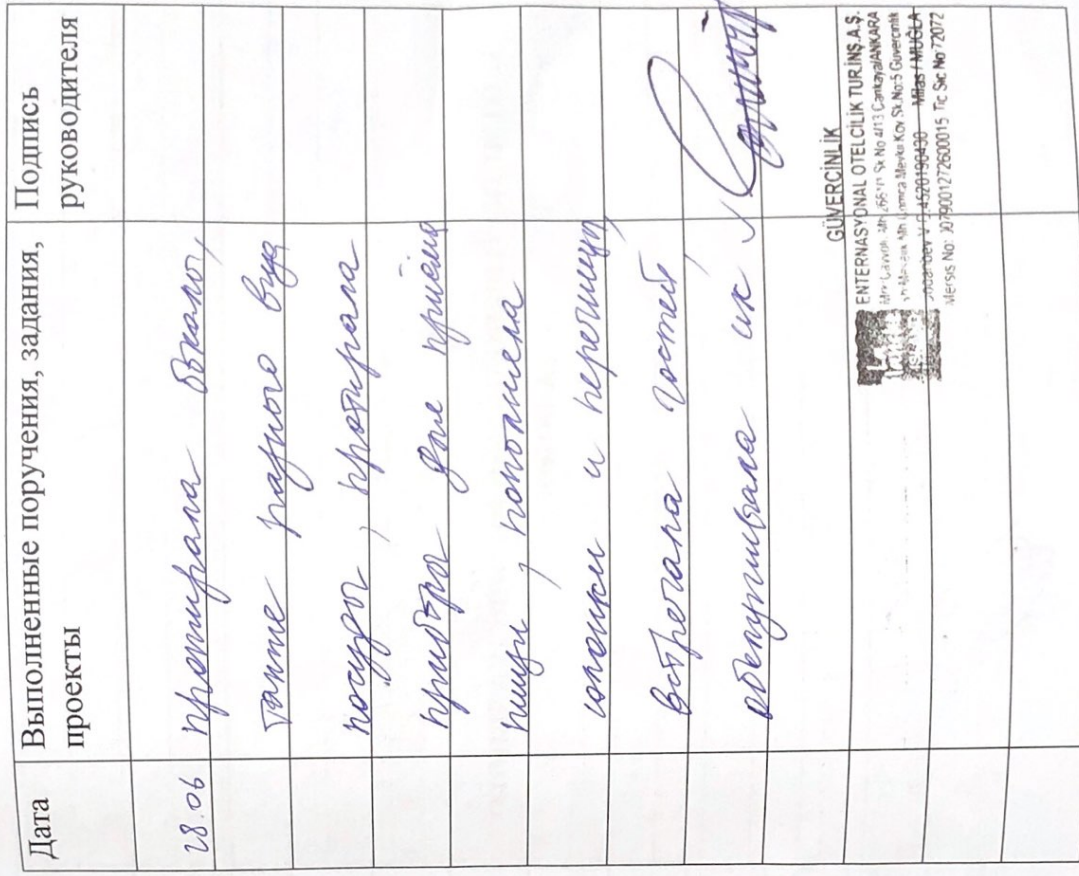 Дата
Выполненные поручения, задания,
проекты
Подпись
руководителя
28.06
протирала бокалы,
также разного вида
посуды, протирала
приборы для приёма
пищи, пополняла
солонки и перечницы,
встречала гостей,
обслуживала их
GÜVERCİNLİK
ENTERNASYONAL OTELCİLİK TUR.İNŞ.A.Ş.
Sk No 4/13 Çankaya/ANKARA
Sk.No:5 Güvercinlik
4520190430 Milas / MUĞLA
Mersis No: Tic Sic No 72072